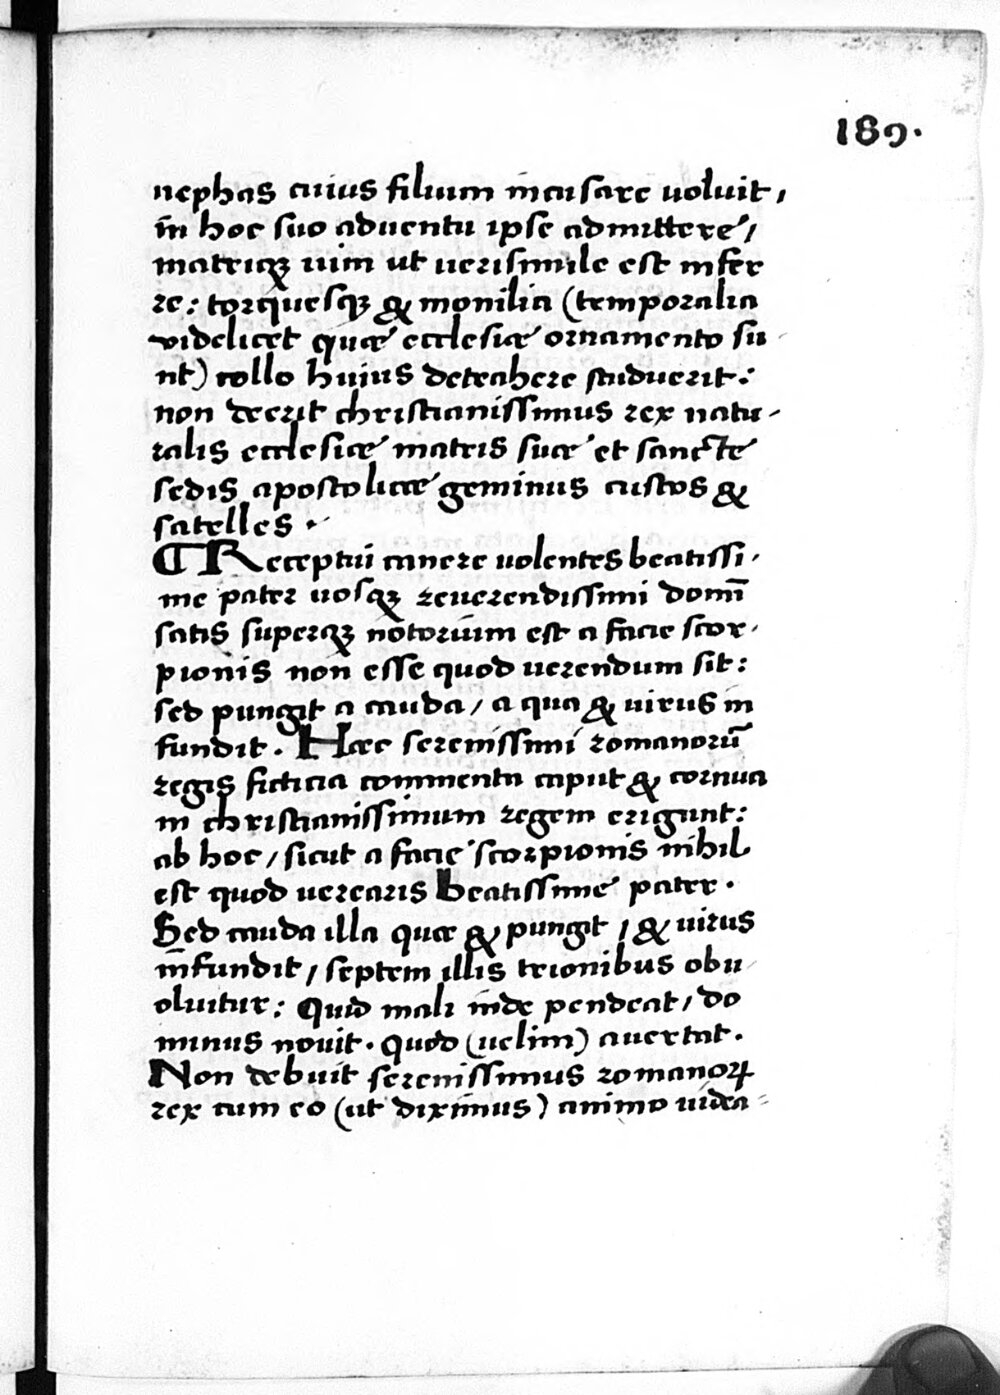 189.
nephas cuius filium incusare uoluit,
in hoc suo aduentu ipse admittere,
matriqꝫ uim ut uerisimile est infer
re: torquesqꝫ & monilia (temporalia
videlicet quæ ecclesiæ ornamento su
nt) collo huius detrahere studuerit:
non deerit christianissimus rex natu-
ralis ecclesiæ matris suæ et sancte
sedis apostolicæ geminus custos &
satelles.
¶ Receptui canere uolentes beatissi-
me pater uosqꝫ reuerendissimi domī
satis superqꝫ notorium est a facie scor-
pionis non esse quod uerendum sit:
sed pungit a cauda, a qua & uirus in
fundit. Hæc serenissimi romanorū
regis ficticia commenta caput & cornua
in christianissimum regem erigunt:
ab hoc, sicut a facie scorpionis nihil
est quod uerearis Beatissime pater.
Sed cauda illa quæ & pungit, & uirus
infundit, septem illis trionibus obu-
oluitur: Quid mali inde pendeat, do
minus nouit. quod (uelim) auertat.
Non debuit serenissimus romanoꝝ
rex cum eo (ut diximus) animo uidea=